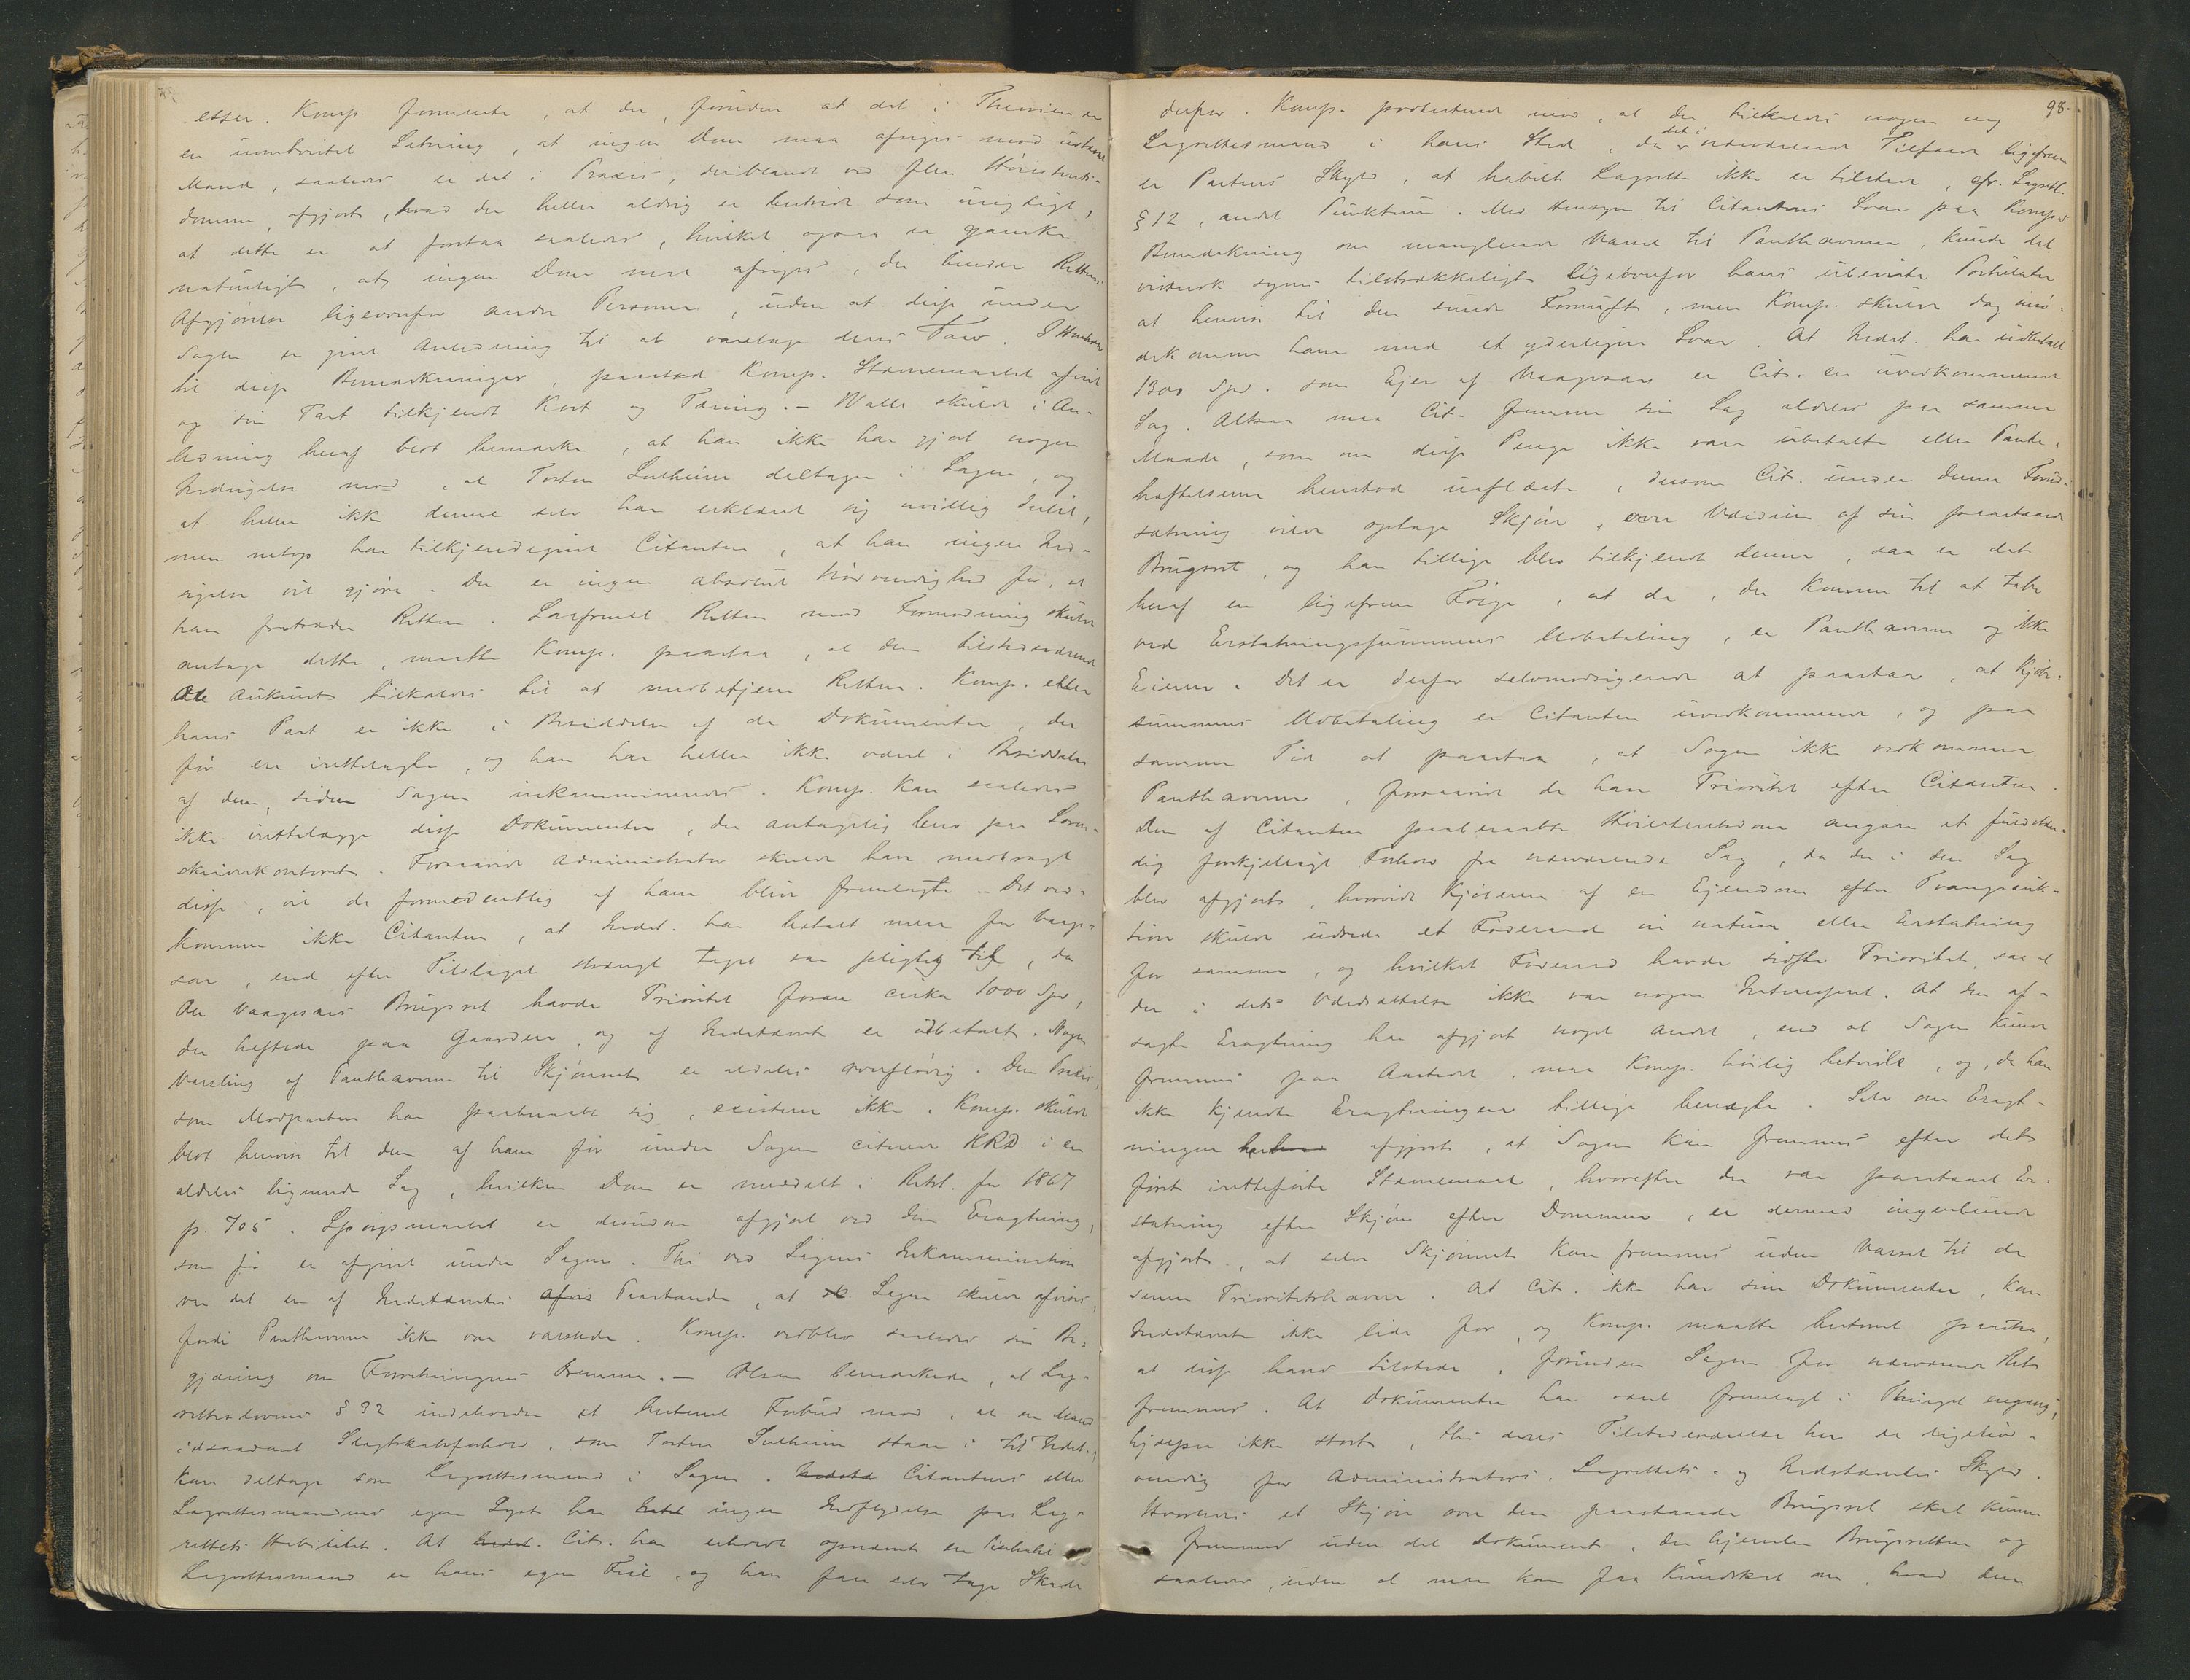 esser. Komp. formente, at der, foruden at det i Theorien er
en uomtvistet Sætning, at ingen Dom maa afsiges mod ustævnt
Mand, saaledes er det i Praxis, deriblandt ved flere Høiesterets-
domme, afgjort, hvad der heller aldrig er bestridt som urigtigt,
at dette er at forstaa saaledes, hvilket ogsaa er ganske
naturligt, at ingen Dom maa afsiges, der binder Rettens
Afgjørelse ligeoverfor andre Personer, uden at disse under
Sagen er givet Anledning til at varetage deres Tarv. I Henhold
til disse Bemærkninger, paastod Komp. Stævnemaalet afvist
og sin Part tilkjendt Kost og Tæring. – Walle skulde i An-
ledning heraf blot bemærke, at han ikke har gjort nogen
Indsigelse mod, at Torsten Sulheim deltager i Sagen, og
at heller ikke denne selv har erklæret sig uvillig dertil,
men netop har tilkjendegivet Citanten, at han ingen Ind-
sigelse vil gjøre. Der er ingen absolut Nødvendighed for, at
han fratræder Retten. Saafremt Retten mod Formodning skulde
antage dette, maatte Komp. paastaa, at den tilstedeværende
Ole Aukunst tilkaldes til at medbetjene Retten. Komp. eller
hans Part er ikke i Besiddelse af de Dokumenter, der
før ere irettelagte, og han har heller ikke været i Besiddelse
af dem, siden Sagen inkaminineredes. Komp. kan saaledes
ikke irettelægge disse Dokumenter, der antagelig bero paa Soren-
skriverkontoret. Forsaavidt Administrator skulde have medbragt
disse, vil de formodentlig af ham blive fremlagte. – Det ved-
kommer ikke Citanten, at Indst. har betalt mere for Vaage-
sar, end efter Tilslaget strængt taget var pligtig til, da
Ole Vaagesars Brugsret havde Prioritet foran cirka 1000 Spd,
der heftede paa Gaarden, og af Indstævnte er udbetalt. Nogen
Varsling af Panthaverne til Skjønnet er aldeles overflødig. Den Praxis,
som Modparten har paaberaabt sig, existerer ikke. Komp. skulde
blot henvise til den af ham før under Sagen citerede HRD. i en
aldeles lignende Sag, hvilken Dom er meddelt i Retst. for 1867
p. 705. Spørgsmaalet er desuden afgjort ved den Eragtning,
som før er afgivet under Sagen. Thi ved Sagens Inkamination
var det en af Indstævntes Afvis Paastande, at sk. Sagen skulde afvises,
fordi Panthaverne ikke var varslede. Komp. vedblev saaledes sin Be-
gjæring om Forretningens Fremme. – Olsen bemærkede, at Lag-
retteslovens § 32 indeholder et bestemt Forbud mod, at en Mand
i dsaadant Slægtskabsforhold, som Torsten Sulheim staar i til Indst.,
kan deltage som Lagrettesmand i Sagen. Indstæ Citantens eller
Lagrettesmandens egen Lyst har ingen Indflydelse paa Lag-
rettets Habilitet. At Indst. Cit. har erholdt opnævnt en inhabil
Lagrettesmand er hans egen Feil, og han faar selv tage Skade
98.
derfor. Komp. protesterede mod, at der tilkaldes nogen ny
Lagrettesmand i hans Sted, da det i nærværende Tilfælde ligefrem
er Partens Skyld, at habilt Lagrette ikke er tilstede, cfr. Lagrettl.
§ 12, andet Punktum. Med Hensyn til Citantens Svar paa Komps
Bemærkning om manglende Varsel til Panthaverne, kunde det
vistnok synes tilstrækkeligt ligeoverfor hans ubeviste Postulater
at henvise til den sunde Fornuft, men Komp. skulde dog imø-
dekomme ham med et yderligere Svar. At Indst. har udbetalt
1300 Spd. som Eier af Vaagesar er Cit. en uvedkommende
Sag. Altsaa maa Cit. fremme sin Sag aldeles paa samme
Maade, som om disse Penge ikke vare udbetalte eller Pante-
hæftelserne henstod uaflæste, dersom Cit. under denne Forud-
sætning vilde optage Skjøn, over Værdien af sin paastaaede
Brugsret, og han tillige blev tilkjendt denne, saa er det
heraf en ligefrem Følge, at de, der kommer til at tabe
ved Erstatningssummens Udbetaling, er Panthaverne og ikke
Eieren. Det er derfor selvmodsigende at paastaa, at Kjøbe-
summens Udbetaling er Citanten uvedkommende, og paa
samme Tid at paastaa, at Sagen ikke vedkommer
Panthaverne, forsaavidt de have Prioritet efter Citanten.
Den af Citanten paaberaabte Høiesteretsdom angaar et fuldstæn-
dig forskjelligt Forhold fra nærværende Sag, da der i den Sag
blev afgjort, hvorvidt Kjøberen af en Eiendom efter Tvangsauk-
tion skulde udrede et Føderaad in natura eller Erstatning
for samme, og hvilket Føderaad havde sidste Prioritet, saa at
der i dets Værdsættelse ikke var nogen Interesseret. At den af-
sagte Eragtning har afgjort noget andet, end at Sagen kunde
fremmes paa Aastedet, maa Komp. høilig betvivle, og, da han
ikke kjendte Eragtningen tillige benægte. Selv om Eragt-
ningen har afgjort, at Sagen kan fremmes efter det
først iretteførte Stævnemaal, hvorefter der var paastaaet Er-
statning efter Skjøn efter Dommen, er dermed ingenlunde
afgjort, at selve Skjønnet kan fremmes uden Varsel til de
senere Prioritetshavere. At Cit. ikke har sine Dokumenter, kan
Indstævnte ikke lide for, og Komp. maatte bestemt paastaa,
at disse havdes tilstede, førinden Sagen for nærværende Ret
fremmes. At Dokumenter har været fremlagt i Thinget engang,
hjælper ikke stort, thi deres Tilstedeværelse her er ligesaa nød-
vendig for Administrators, Lagrettets- og Indstævntes Skyld.
Hvorledes et Skjøn over den paastaaede Brugsret skal kunne
fremmes uden det Dokument, der hjemler Brugsretten og
saaledes, uden at man kan faa Kundskab om, hvad den